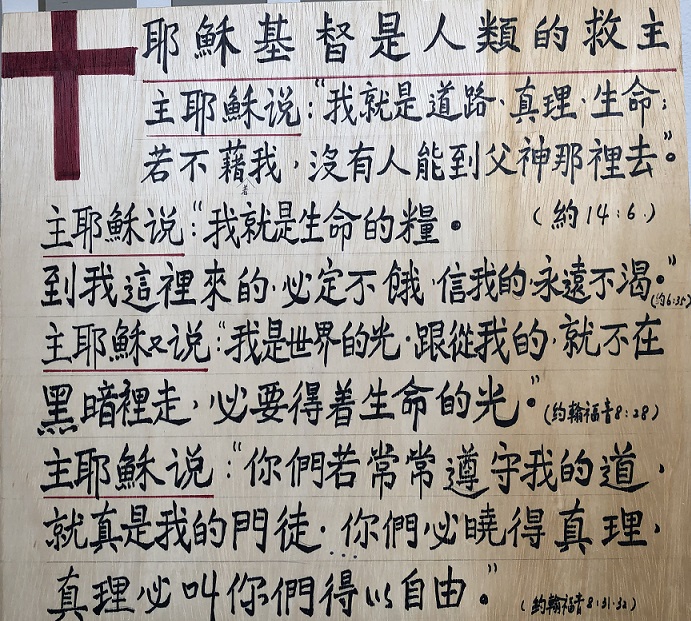 耶穌基督是人類的救主
主耶穌说:“我就是道路、真理、生命;
若不藉着我,沒有人能到父神那裡去。”
主耶穌说:“我就是生命的糧。 (約14:6.)
到我這裡來的,必定不餓,信我的,永遠不渴。”(約6:35)
主耶穌又说:“我是世界的光,跟從我的,就不在
黑暗裡走,必要得着生命的光。”(約翰福音8:28)
主耶穌说:“你們若常常遵守我的道,
就真是我的門徒.你們必曉得真理,
真理必叫你們得以自由。”(約翰福音8:31.32)